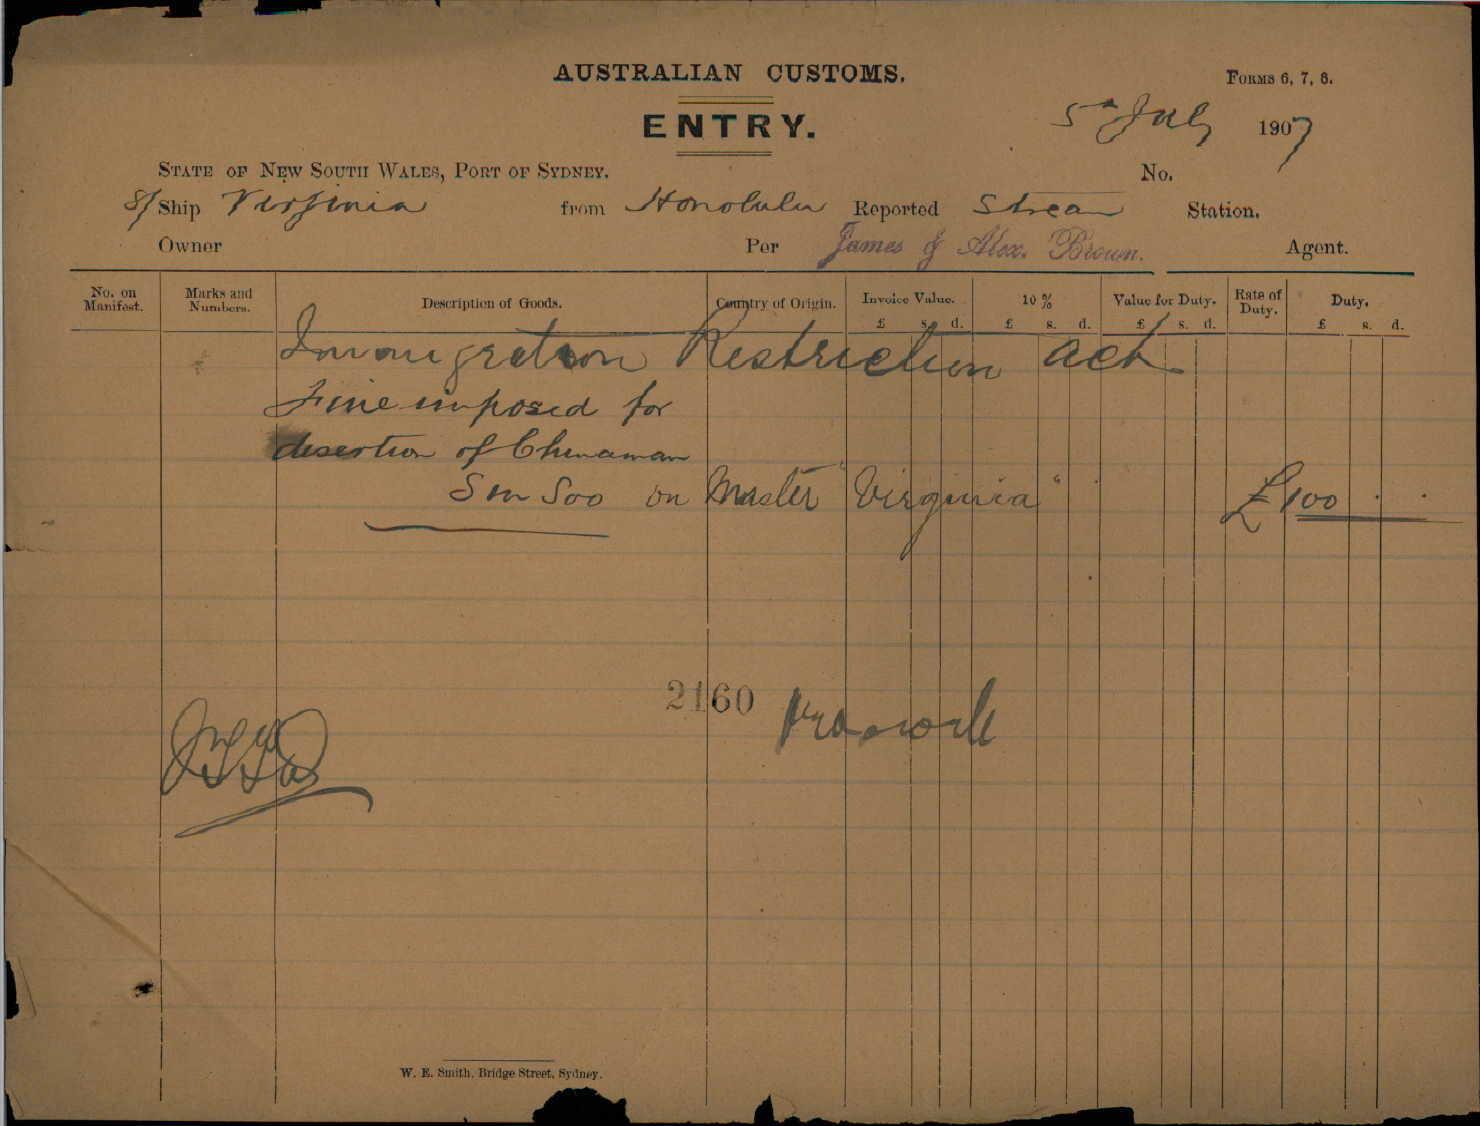 AUSTRALIAN CUSTOMS.
FORMS 6, 7, 8.
ENTRY.
5th July 1907
STATE OF NEW SOUTH WALES, PORT OF SYDNEY.
No.
S/Ship Virginia from Honolulu Reported Stream Station.
Owner Per James & Alex. Brown. Agent.
No. on Manifest. Marks and Numbers. Description of Goods. Country of Origin. Invoice Value. 10 % Value for Duty. Rate of Duty. Duty.
£ s. d. £ s. d. £ s. d. £ s. d.
Immigration Restriction Act
Fine imposed for
desertion of Chinaman
Sun Soo on Master "Virginia" £100 . .
2160
W. E. Smith, Bridge Street, Sydney.